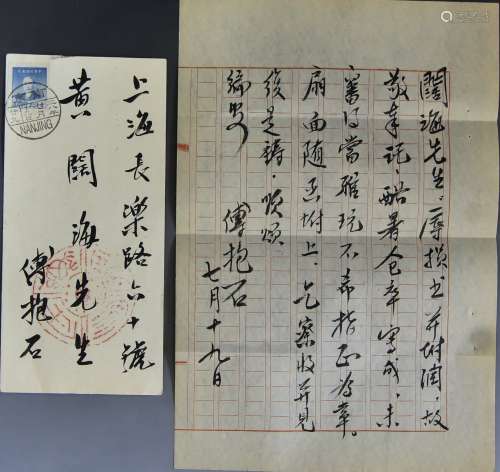 上海长乐路六十號
黄闊海先生
傅抱石
NANJING
闊海先生：辱損書并附潤，故
敬奉託，酷暑仓卒寫成，未
審得當雅玩不，希指正為幸。
扇面随函坿上，乞察收并見
復是禱，順頌
編安
傅抱石
七月十九日